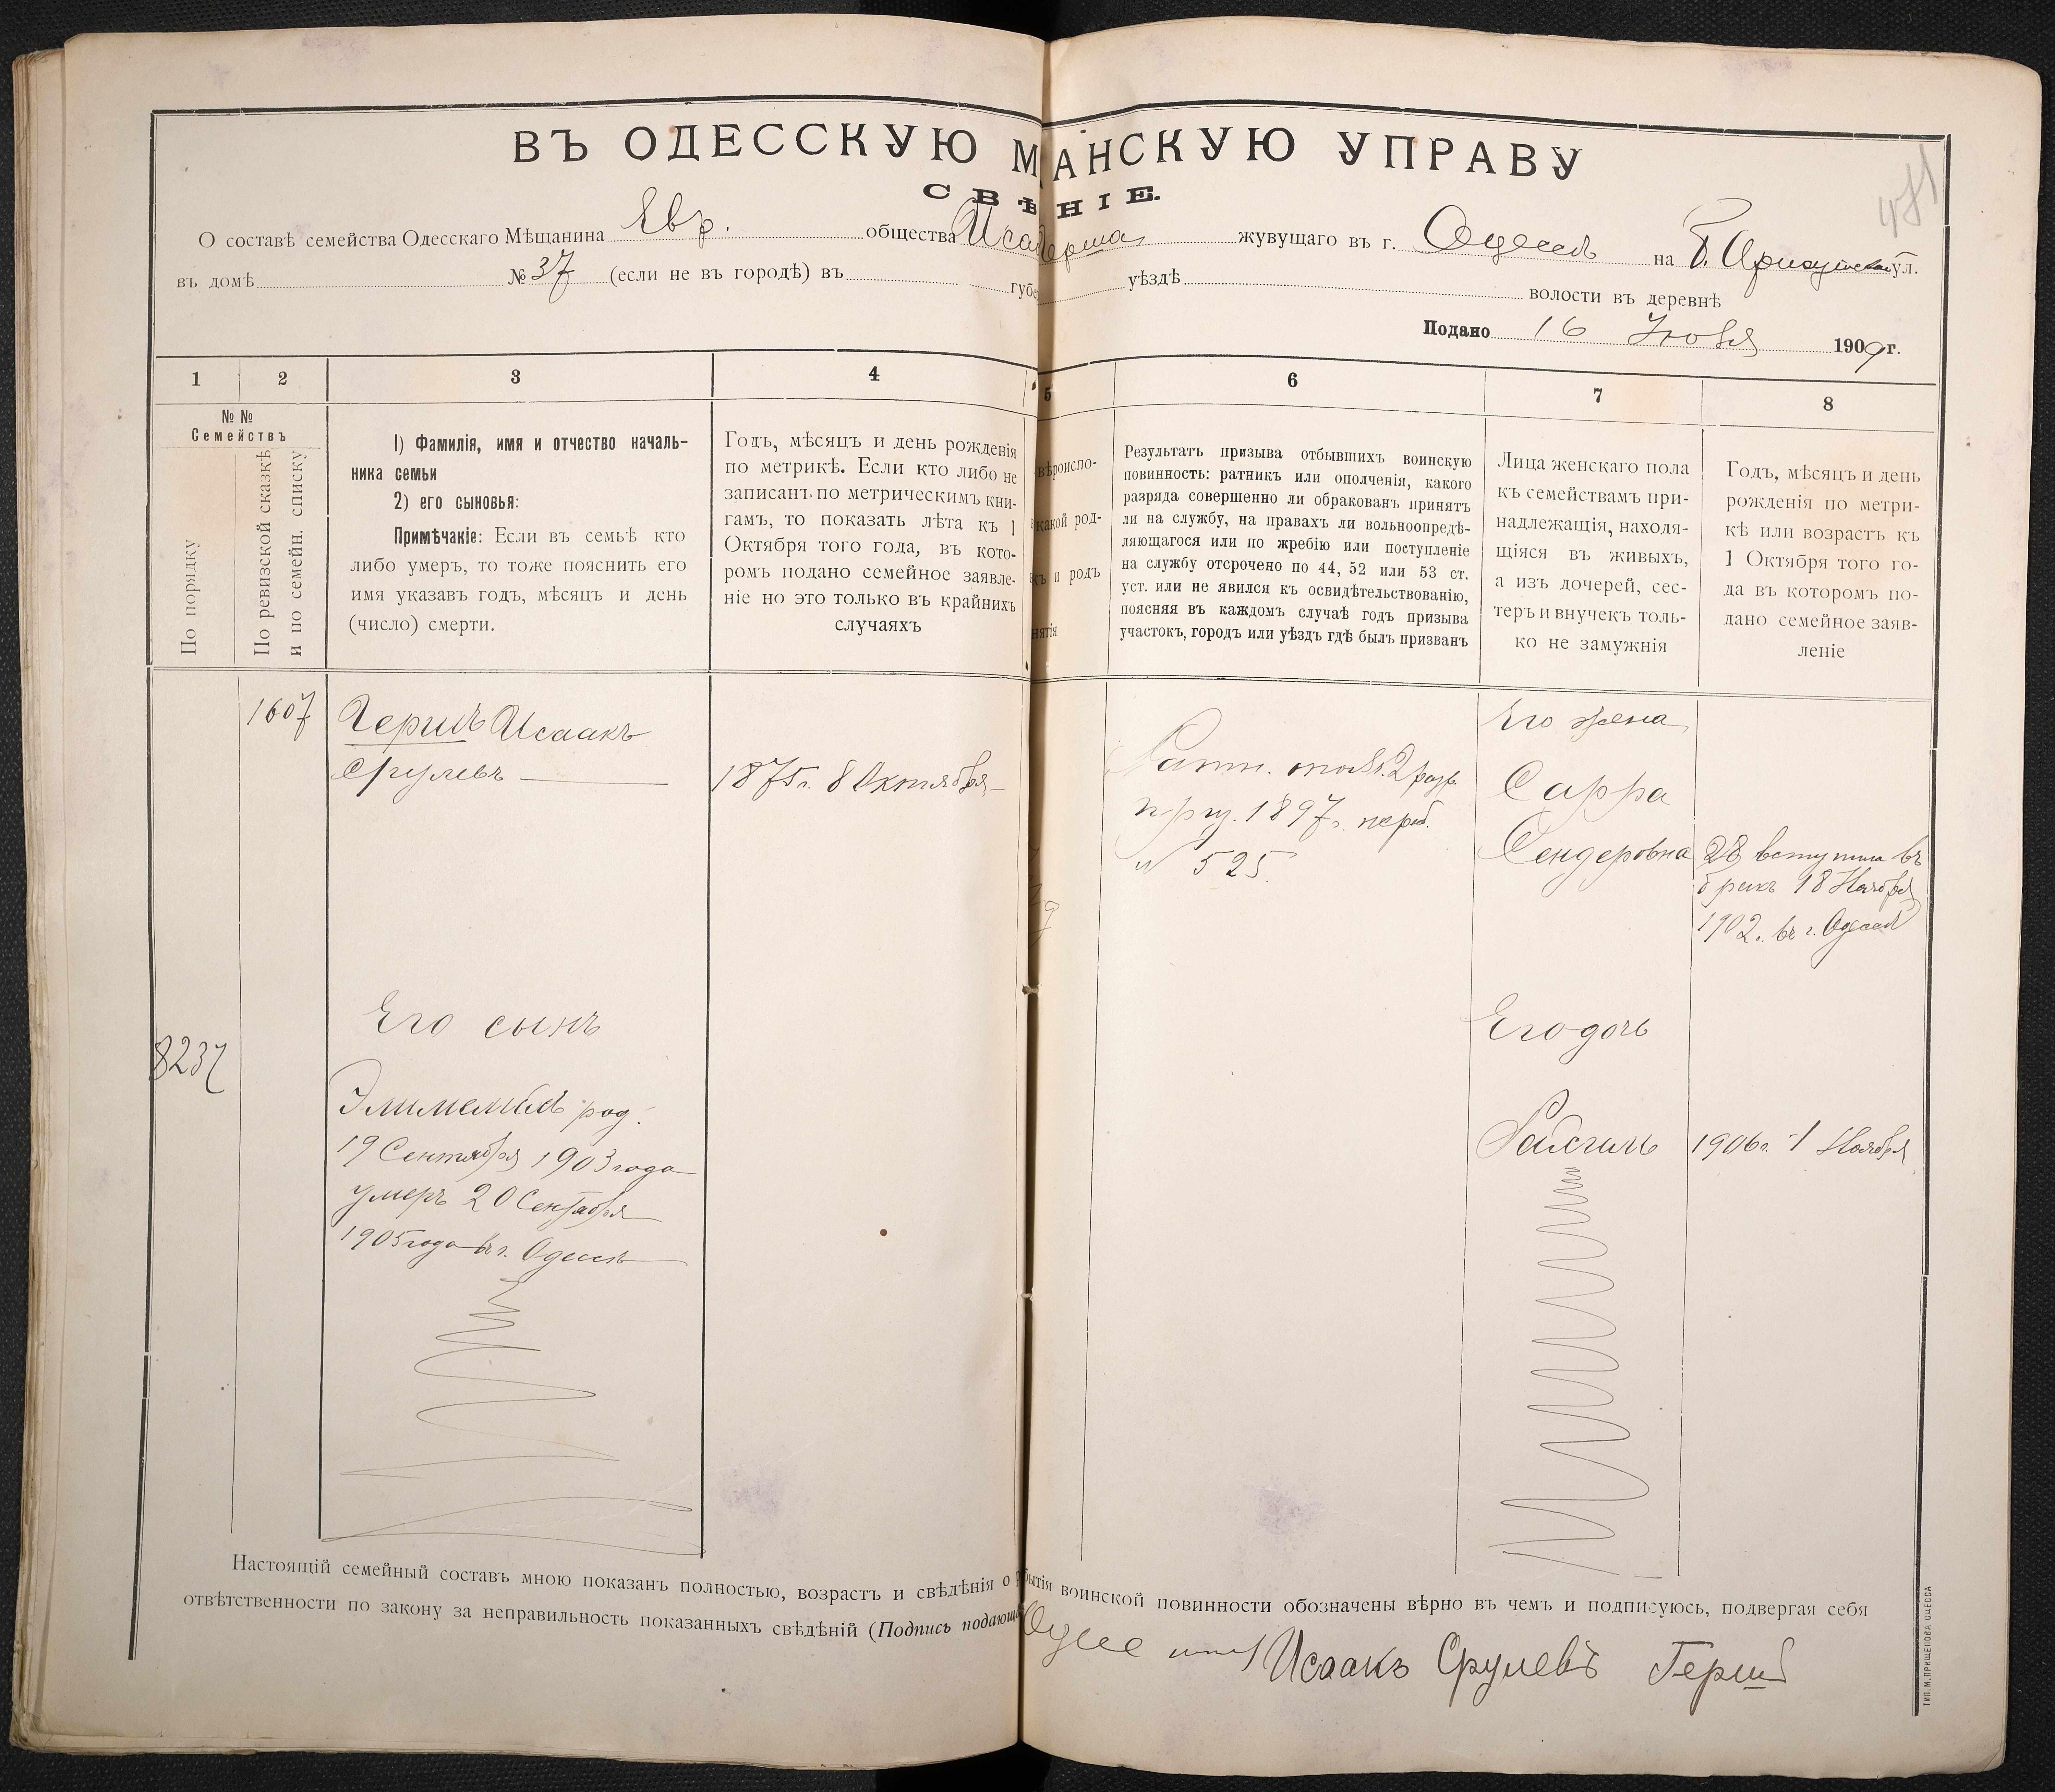 ВЪ ОДЕССКУЮ М АНСКУЮ УПРАВУ
СВѢ НІЕ.
О составѣ семейства Одесскаго Мѣщанина Евр. общества Иса Герша жувущаго въ г. Одессѣ на Б. Арнаутской ул.
въ домѣ № 37 (если не въ городѣ) въ губе уѣздѣ волости въ деревнѣ
Подано 16 1909 г.
481
1 2 3 4 5 6 7 8
№ № Семействъ
По порядку
По ревизской сказкѣ
и по семейн. списку
1) Фамилія, имя и отчество началь-
ника семьи
2) его сыновья:
Примѣчаніе: Если въ семьѣ кто
либо умеръ, то тоже пояснить его
имя указавъ годъ, мѣсяцъ и день
(число) смерти.
Годъ, мѣсяцъ и день рожденія
по метрикѣ. Если кто либо не
записанъ по метрическимъ кни-
гамъ, то показать лѣта къ 1
Октября того года, въ кото-
ромъ подано семейное заявле-
ніе но это только въ крайнихъ
случаяхъ
вѣроиспо-
какой род-
и родъ
нятія
Результатъ призыва отбывшихъ воинскую
повинность: ратникъ или ополченія, какого
разряда совершенно ли обракованъ принятъ
ли на службу, на правахъ ли вольноопредѣ-
ляющагося или по жребію или поступленіе
на службу отсрочено по 44, 52 или 53 ст.
уст. или не явился къ освидѣтельствованію,
поясняя въ каждомъ случаѣ годъ призыва
участокъ, городъ или уѣздъ гдѣ былъ призванъ
Лица женскаго пола
къ семействамъ при-
надлежащія, находя-
щіяся въ живыхъ,
а изъ дочерей, сес-
теръ и внучекъ толь-
ко не замужнія
Годъ, мѣсяцъ и день
рожденія по метри-
кѣ или возрастъ къ
1 Октября того го-
да въ котором по-
дано семейное заяв-
леніе
1607
Гершъ Исаакъ
Срулевъ
1875 г. 8 Октября
Ратн. опол. 2 разр.
приз. 1897 г.
№ 525.
Его жена
Сарра
Сендеровна
28 вступила въ
бракъ 18 Ноября
1902 г. въ г. Одессѣ
8237
Его сынъ
Элимелехъ род.
19 Сентября 1903 года
умеръ 20 Сентября
1905 года въ г. Одессѣ
Его дочь
Рейзель
1906 г. 1 Ноября
Настоящій семейный составъ мною показанъ полностью, возрастъ и свѣдѣнія о бытія воинской повинности обозначены вѣрно въ чемъ и подписуюсь, подвергая себя
отвѣтственности по закону за неправильность показанныхъ свѣдѣній (Подпись подающ
Исаакъ Срулевъ Гершъ
ТИП. М. ПРИЩЕПОВА ОДЕССА